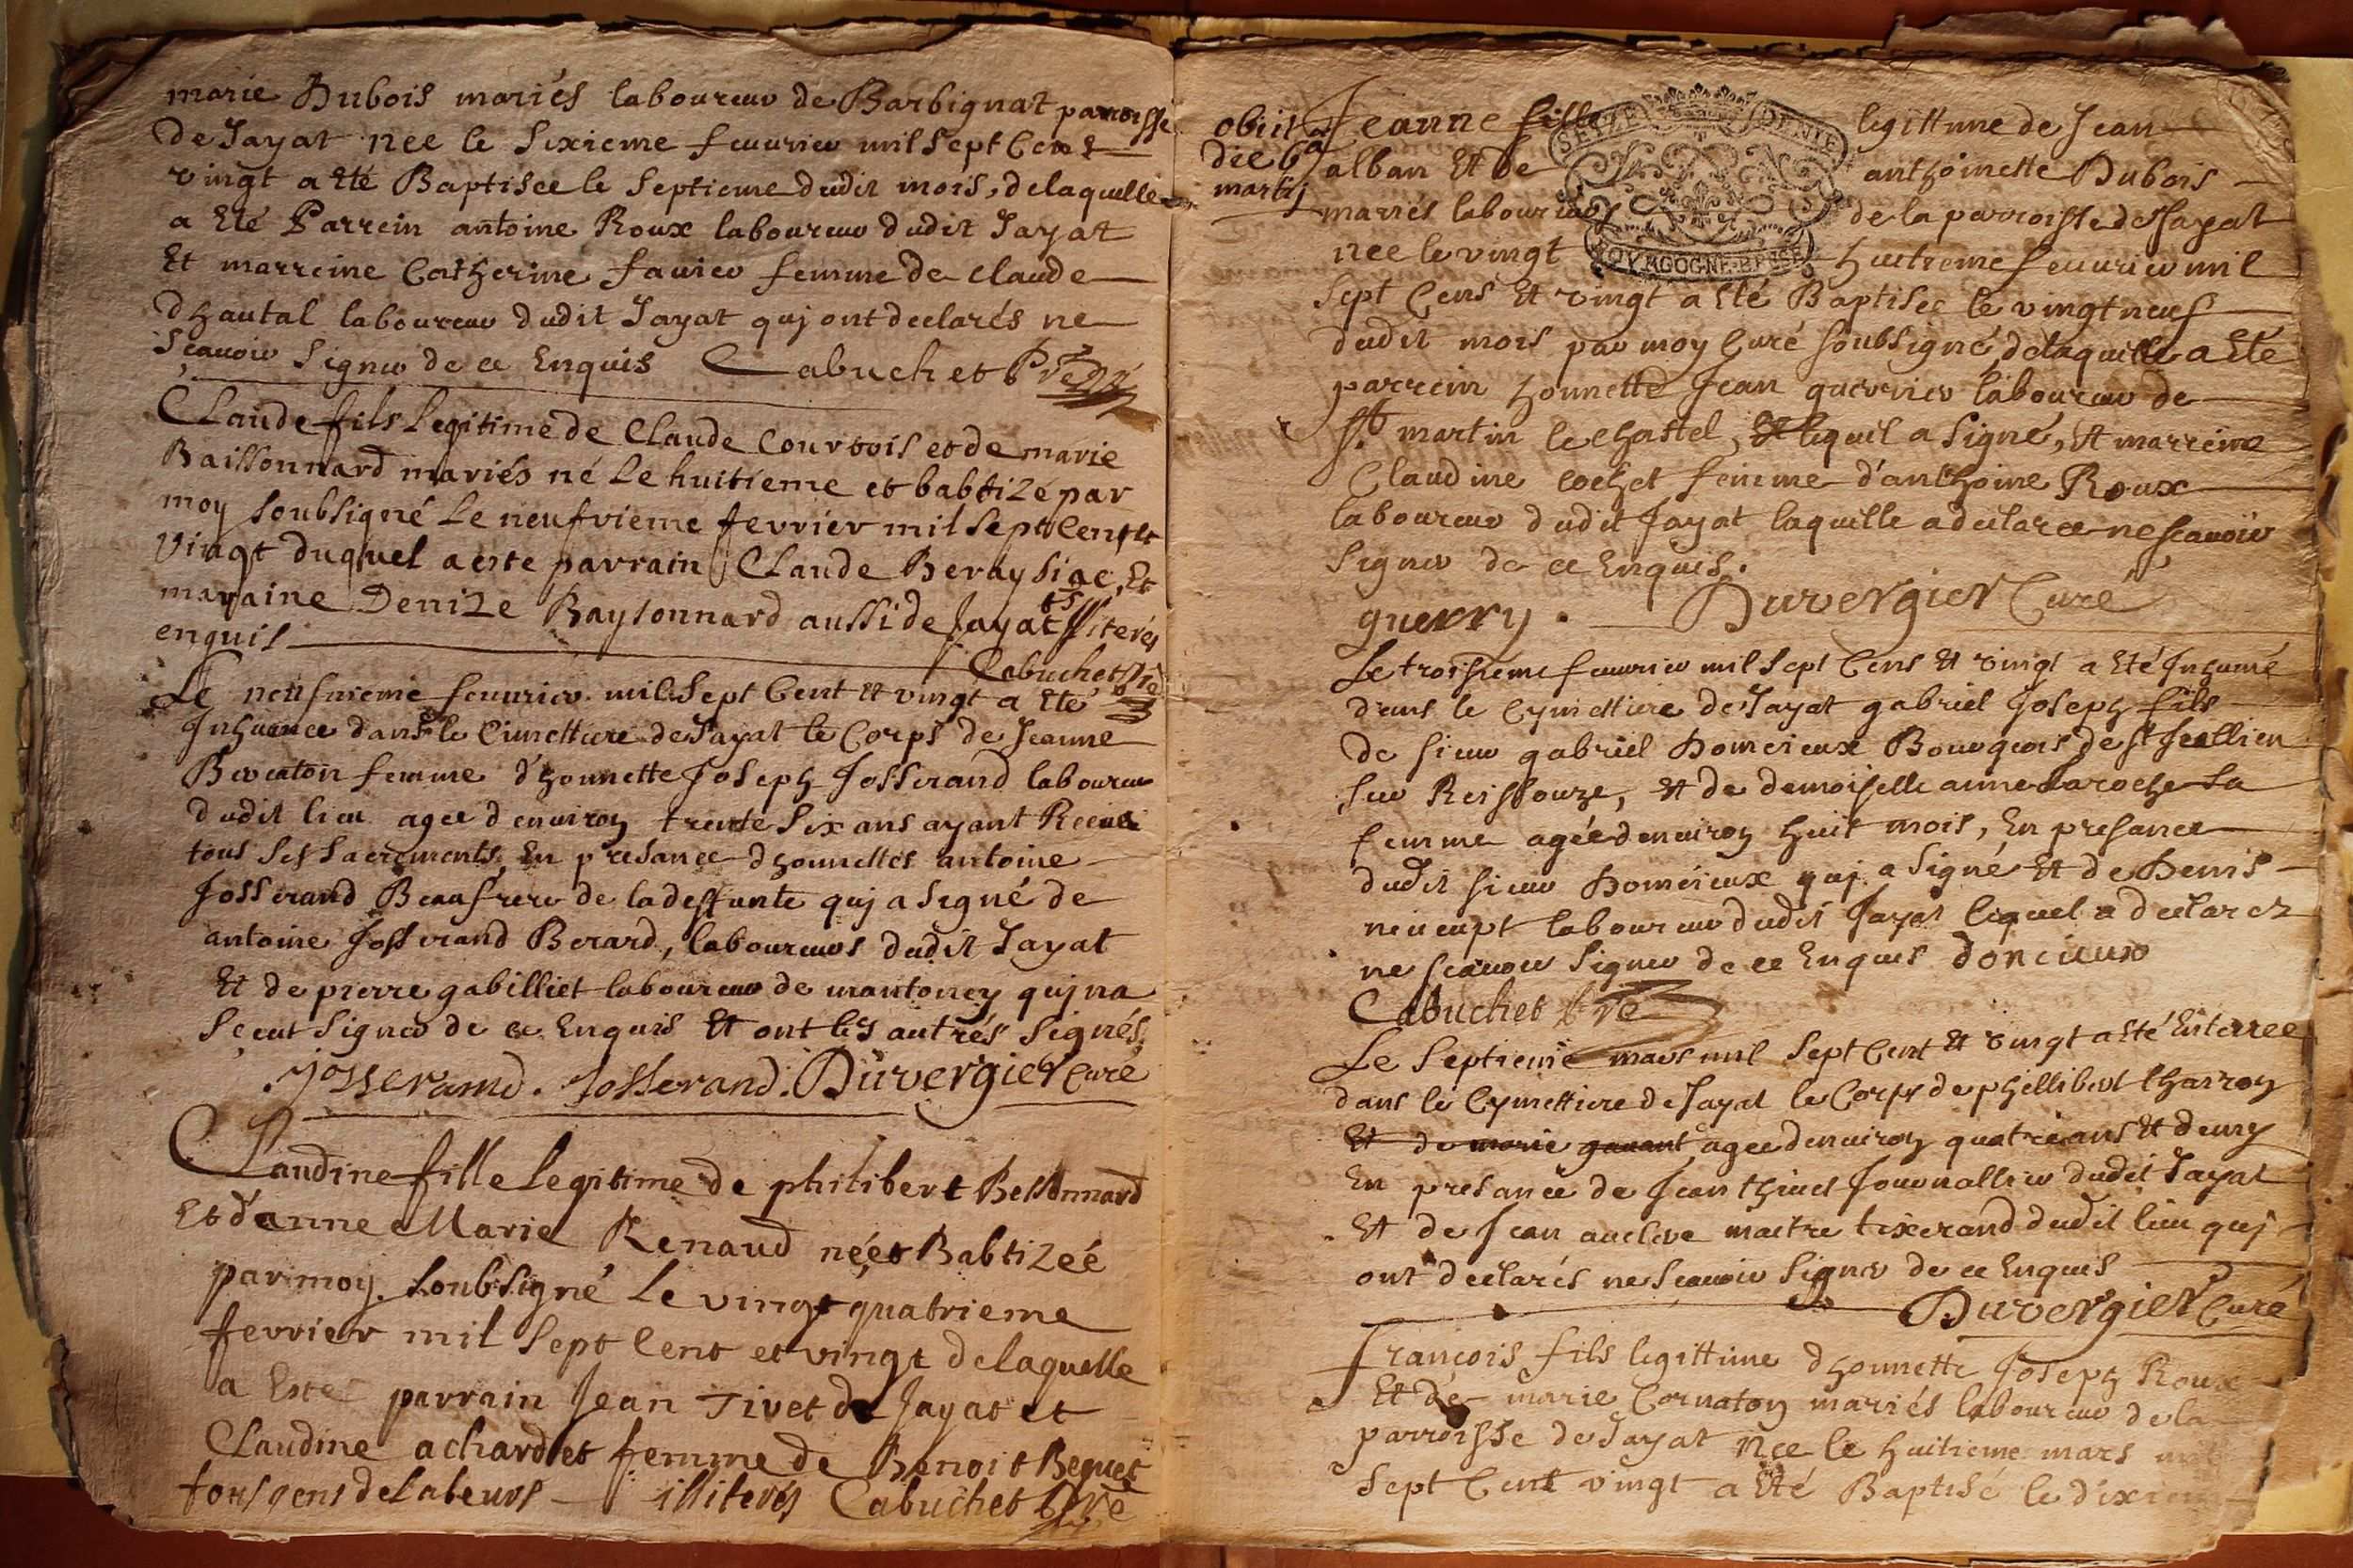 marie Dubois mariés laboureur de Barbignat parroisse
de Jayat nee le Sixieme feuurier mil Sept Cent
vingt a Eté Baptisee le Septieme dudit mois, de laquelle
a Eté Parrein antoine Roux laboureur dudit Jayat
Et marreine Catherine fauier femme de claude
dhautal laboureur dudit Jayat quj ont declarés ne
Sçauoir Signer de ce Enquis Cabuchet Pre
Claude fils Legitime de Claude Courtois et de marie
Baissonnard mariés né Le huitieme et babtizé par
moy soubsigné Le neufvieme fevrier mil sept Cent et
vingt duquel a este parrain Claude Beray Siac, Et
maraine Denize Baysonnard aussi de Jayat Illiterés
enquis
Cabuchet Pre
Le neufuieme feuurier mil Sept Cent et vingt a Eté
Inhumée dans le Cimettiere de Jayat le Corps de Jeanne
femme d'honnette Joseph Josserand laboureur
dudit lieu agee denuiron trente Six ans ayant Receu
tous Ses Sacrements, En presance dhonnettes antoine
Josserand Beaufrere de la deffunte quj a Signé de
antoine Josserand Berard, laboureurs dudit Jayat
Et de pierre gabilliet laboureur de mantoney quj na
Sceut Signer de ce Enquis Et ont les autrés Signés
Josserand. Josserand. Duvergier Curé
Claudine fille Legitime de philibert Bessonnard
Et d'anne Marie Renaud née et Babtizéé
par moy soubsigné Le vingt quatrieme
fevrier mil Sept Cent et vingt de laquelle
a Este parrain Jean Tivet de Jayat et
Claudine achardet femme de Benoit Beguet
tous gens de Labeurs illiterés Cabuchet Pre
obiit
die 6a
martij
Jeanne fille legittime de Jean
SEIZE DENIE
alban Et de anthoinette Dubois
mariés laboureurs de la parroisse de Jayat
BOVRGOGNE BRESSE
nee le vingt huitieme feuurier mil
Sept Cens Et vingt a Eté Baptisée le vingt neuf
dudit mois par moy Curé Soubsigné, de laquelle a Eté
parrein honnette Jean guerrier laboureur de
St martin le Chastel, Et lequel a Signé, Et marreine
Claudine cochet femme d'anthoine Roux
laboureur dudit Jayat laquelle a declaree ne scauoir
Signer de ce Enquis.
guerry. Duvergier Curé
Le troisieme feuurier mil Sept Cens Et vingt a Eté Inhumé
dans le Cymettiere de Jayat gabriel Joseph fils
de sieur gabriel Domcieux Bourgeois de St Jeallien
sur Reissouze, Et de demoiselle anne Laroche Sa
femme agée denuiron huit mois, En presance
dudit sieur Domcieux quj a Signé Et de Denis
laboureur dudit Jayat lequel a declarez
ne scauoir Signer de ce Enquis Doncieux
Cabuchet Pre
Le Septieme mars mil Sept Cent Et vingt a Eté Enterree
dans le Cymettiere de Jayat le Corps de phillibert Charron
Et de marie gauant agee denuiron quatre ans Et demy
En presance de Jean Journallier dudit Jayat
Et de Jean maitre tixerand dudit lieu quj
ont declarés ne Scauoir Signer de ce Enquis
Duvergier Curé
francois fils legittime dhonnette Joseph Roux
Et de marie Cornaton mariés laboureur de la
parroisse de Jayat nee le huitieme mars mil
Sept Cent vingt a Eté Baptisé le dixieme